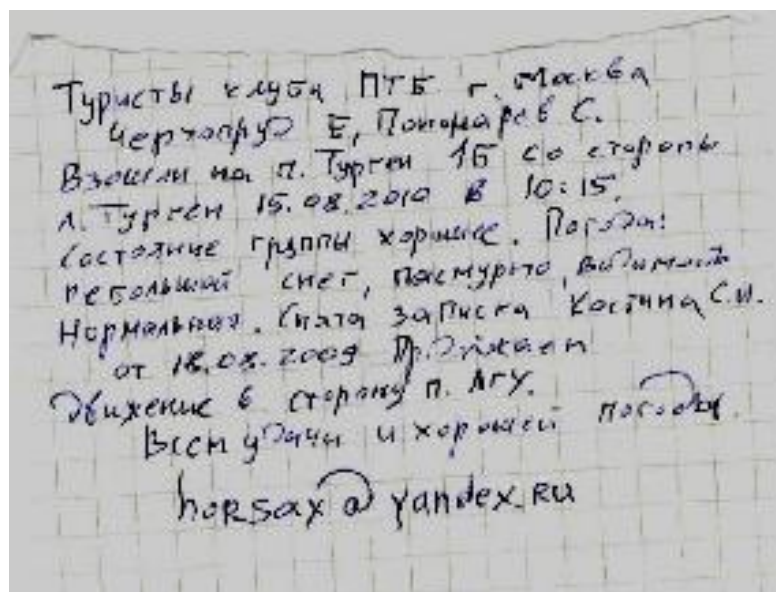 Туристы клуба ПТБ г. Москва
Чернопруд Е, Пономарев С.
Взошли на п. Турген 1Б со стороны
л. Турген 15.08.2010 в 10:15.
Состояние группы хорошее. Погода:
небольшой снег, пасмурно, видимость
Нормальная. Снята записка Костина С.И.
от 18.08.2009 Продолжаем
движение в сторону п. АГУ.
Всем удачи и хорошей погоды.
horsax@yandex.ru